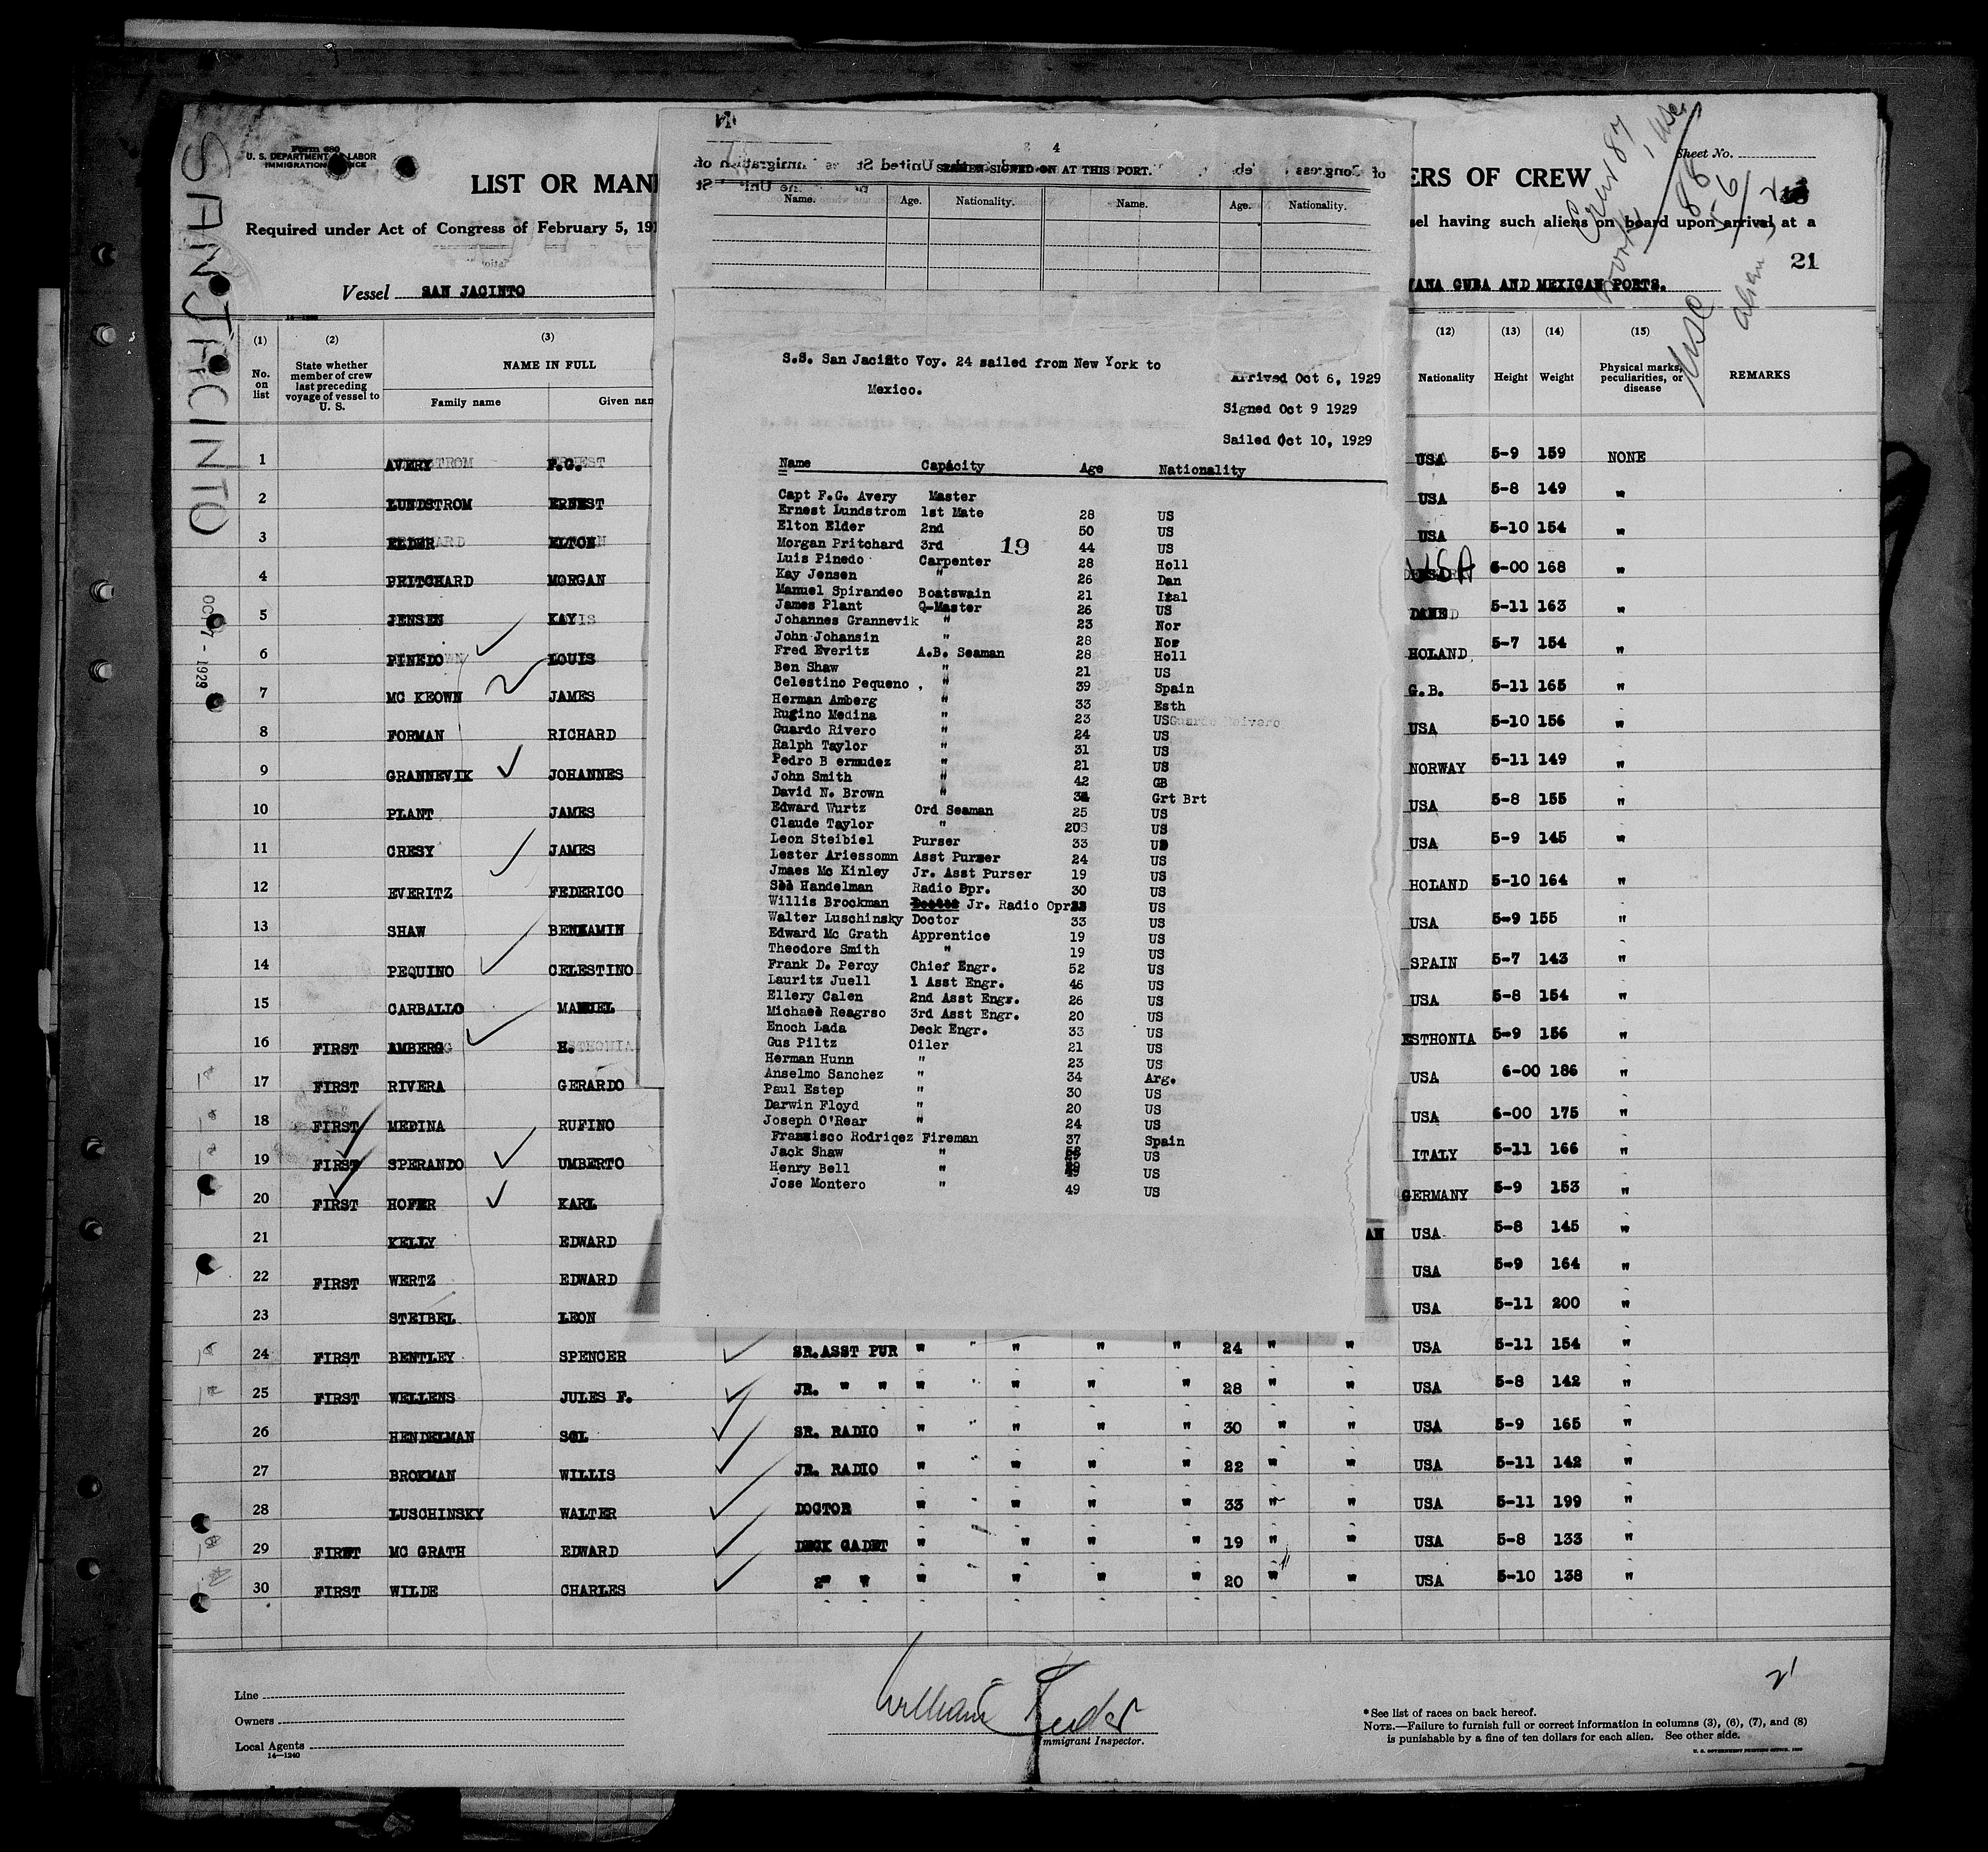 Form 680
U. S. DEPARTMENT OF LABOR
IMMIGRATION SERVICE
SAN JACINTO
OCT 7 - 1929
LIST OR MANI
ERS OF CREW
Sheet No.
Required under Act of Congress of February 5, 191
sel having such aliens on board upon arrival at a
21
Vessel SAN JACINTO
VANA CUBA AND MEXICAN PORTS.
4
SEAMEN SIGNED ON AT THIS PORT.
Name. Age. Nationality. Name. Age. Nationality.
S.S. San Jacinto Voy. 24 sailed from New York to
Mexico.
Arrived Oct 6, 1929
Signed Oct 9 1929
Sailed Oct 10, 1929
Name Capacity Age Nationality
Capt F.G. Avery Master
Ernest Lundstrom 1st Mate 28 US
Elton Elder 2nd 50 US
Morgan Pritchard 3rd 19 44 US
Luis Pinedo Carpenter 28 Holl
Kay Jensen " 26 Dan
Manuel Spirandeo Boatswain 21 Ital
James Plant Q-Master 26 US
Johannes Grannevik " 23 Nor
John Johansin " 28 Nor
Fred Everitz A.B. Seaman 28 Holl
Ben Shaw " 21 US
Celestino Pequeno , " 39 Spain
Herman Amberg " 33 Esth
Rufino Medina " 23 US
Guardo Rivero " 24 US
Ralph Taylor " 31 US
Pedro B ermudez " 21 US
John Smith " 42 GB
David N. Brown " Grt Brt
Edward Wurtz Ord Seaman 25 US
Claude Taylor " 20 US
Leon Steibiel Purser 33 US
Lester Ariessomn Asst Purser 24 US
Jmaes Mc Kinley Jr. Asst Purser 19 US
Sol Handelman Radio Opr. 30 US
Willis Brockman Doctor Jr. Radio Opr US
Walter Luschinsky Doctor 33 US
Edward Mc Grath Apprentice 19 US
Theodore Smith " 19 US
Frank D. Percy Chief Engr. 52 US
Lauritz Juell 1 Asst Engr. 46 US
Ellery Calen 2nd Asst Engr. 26 US
Michael Reagrso 3rd Asst Engr. 20 US
Enoch Lada Deck Engr. 33 US
Gus Piltz Oiler 21 US
Herman Hunn " 23 US
Anselmo Sanchez " 34 Arg.
Paul Estep " 30 US
Darwin Floyd " 20 US
Joseph O'Rear " 24 US
Francisco Rodriqez Fireman 37 Spain
Jack Shaw " US
Henry Bell " US
Jose Montero " 49 US
(1) (2) (3) (12) (13) (14) (15)
No. on list
State whether member of crew last preceding voyage of vessel to U. S.
NAME IN FULL
Family name Given nam
Nationality Height Weight
Physical marks, peculiarities, or disease
REMARKS
1 AVERY F.G. USA 5-9 159 NONE
2 LUNDSTROM ERNEST USA 5-8 149 "
3 ELDER ELTON USA 5-10 154 "
4 PRITCHARD MORGAN USA 6-00 168 "
5 JENSEN KAY DANE 5-11 163 "
6 PINEDO LOUIS HOLAND 5-7 154 "
7 MC KEOWN JAMES G.B. 5-11 165 "
8 FORMAN RICHARD USA 5-10 156 "
9 GRANNEVIK JOHANNES NORWAY 5-11 149 "
10 PLANT JAMES USA 5-8 155 "
11 CRESY JAMES USA 5-9 145 "
12 EVERITZ FEDERICO HOLAND 5-10 164 "
13 SHAW BENKAMIN USA 5-9 155 "
14 PEQUINO CELESTINO SPAIN 5-7 143 "
15 CARBALLO MANUEL USA 5-8 154 "
16 FIRST AMBERG H. ESTHONIA 5-9 156 "
17 FIRST RIVERA GERARDO USA 6-00 186 "
18 FIRST MEDINA RUFINO USA 6-00 175 "
19 FIRST SPERANDO UMBERTO ITALY 5-11 166 "
20 FIRST HOFER KARL GERMANY 5-9 153 "
21 KELLY EDWARD AN USA 5-8 145 "
22 FIRST WERTZ EDWARD USA 5-9 164 "
23 STEIBEL LEON USA 5-11 200 "
24 FIRST BENTLEY SPENCER SR.ASST PUR " " " " " 24 " " USA 5-11 154 "
25 FIRST WELLENS JULES F. JR. " " " " " " " 28 " " USA 5-8 142 "
26 HENDELMAN SOL SR. RADIO " " " " " 30 " " USA 5-9 165 "
27 BROKMAN WILLIS JR. RADIO " " " " " 22 " " USA 5-11 142 "
28 LUSCHINSKY WALTER DOCTOR " " " " " 33 " " USA 5-11 199 "
29 FIRST MC GRATH EDWARD DECK CADET " " " " 19 " " USA 5-8 133 "
30 FIRST WILDE CHARLES 2" " " " " " 20 " " USA 5-10 138 "
Line
Owners
Local Agents
14—1240
Immigrant Inspector.
21
* See list of races on back hereof.
NOTE.—Failure to furnish full or correct information in columns (3), (6), (7), and (8)
is punishable by a fine of ten dollars for each alien. See other side.